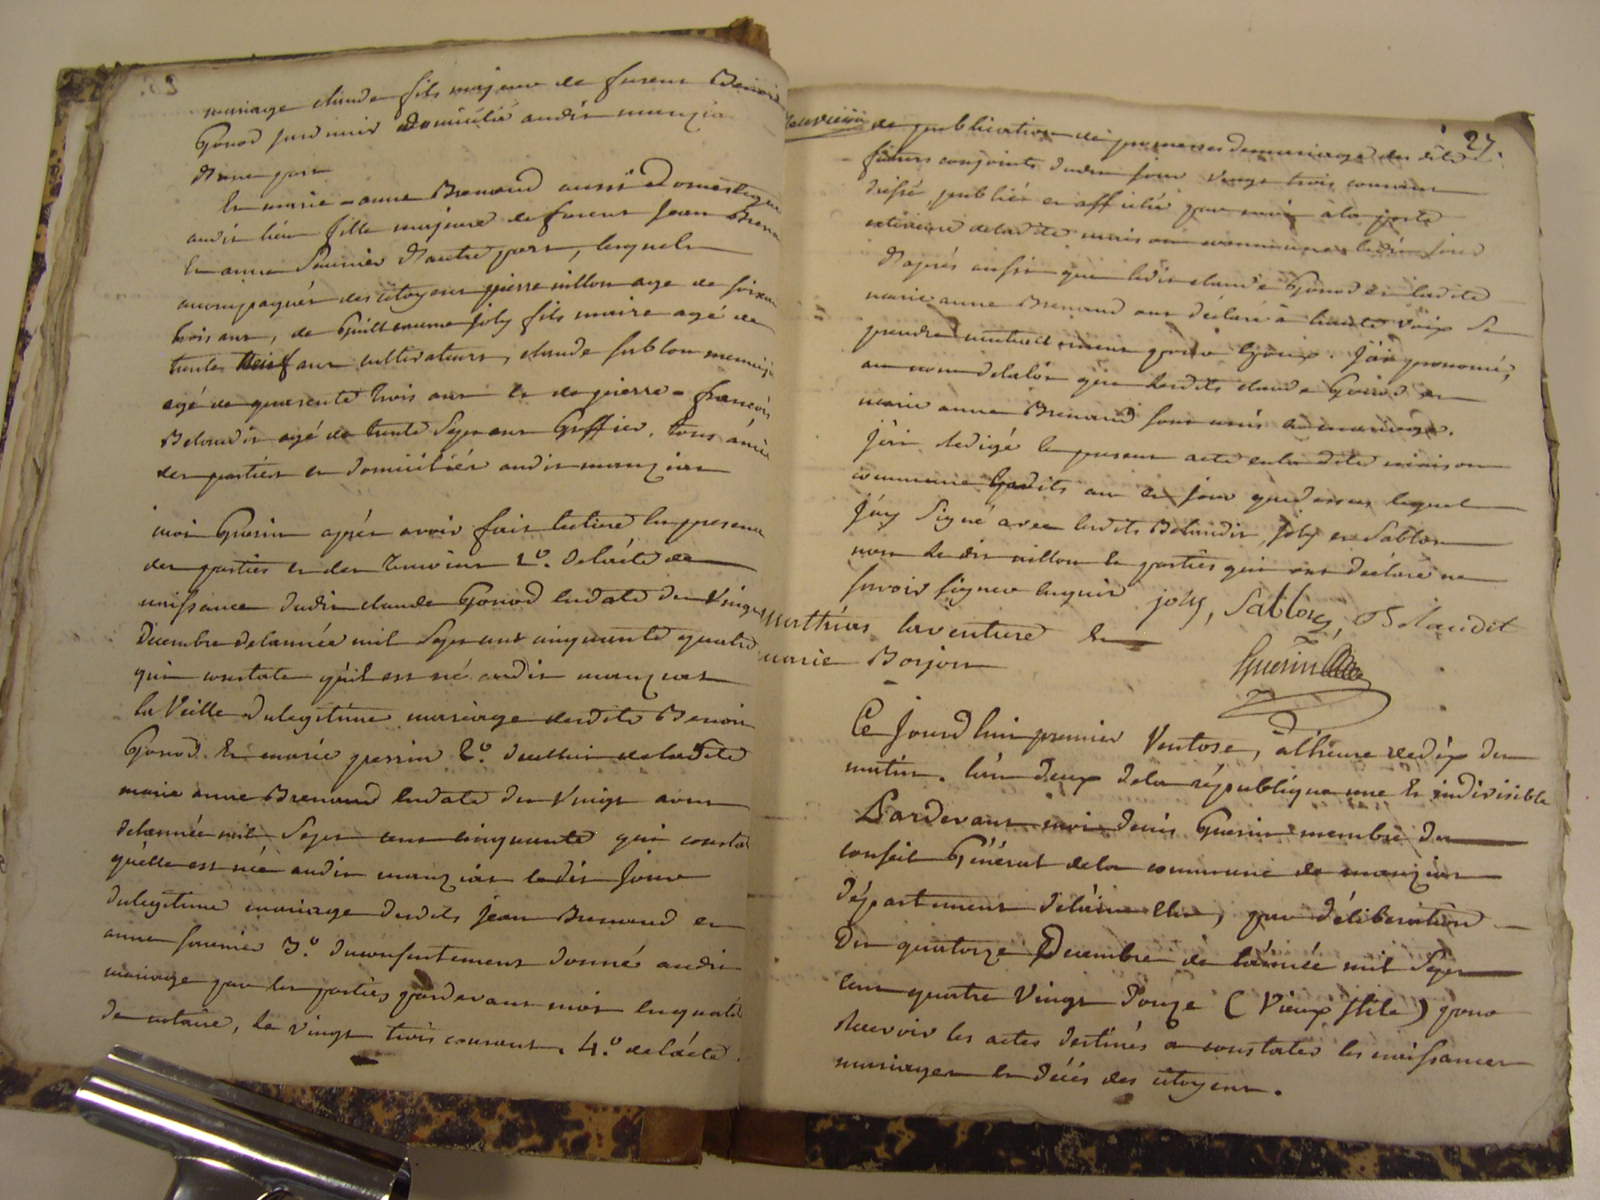 mariage claude fils majeur de furent Benoit
Gonod jardinier domicilié audit manziat
d'une part
Et marie-anne Brenaud aussi domestique
audit lieu fille majeure de furent Jean Brenaud
Et anne fournier d'autre part, lesquels
accompagnés des citoyens pierre millon age de soixante
trois ans, de Guillaume joly fils maire agé de
trente neuf ans cultivateurs, claude sablon
agé de quarente trois ans et de pierre-francois
Belaudit agé de trente Sept ans Greffier, tous amis
des parties et domiciliés audit manziat
moi Guerin après avoir fait lecture en presence
des parties et des temoins 1º. de l'acte de
naissance dudit claude Gonod endate du vingt
decembre delannée mil Sept cent cinquante quatre
qui constate qu'il est né audit manziat
la veille du legitime mariage desdits Benoit
Gonod Et marie perrin 2º. de celui de ladite
marie anne Brenaud endate du vingt aoust
delannée mil Sept cent cinquante qui constate
qu'elle est née audit manziat ledit jour
du legitime mariage desdits jean Brenaud et
anne fournier 3º. du consentement donné audit
mariage par les parties pardevant moi en qualité
de notaire, le vingt trois courant. 4.º de l'acte
27.
de publication de promesses de mariage des dits
futurs conjoints dudit jour vingt trois courant
dressé publié et affiché par moi à la porte
exterieure deladite maison commune ledit jour
d'après aussi que ledit claude Gonod et ladite
marie anne Brenaud ont déclaré à haute voix se
prendre mutuellement pour Epoux. J'ai prononcé,
au nom delaloi que lesdits claude Gonod et
marie anne Brenaud sont unis en mariage.
J'ai redigé le present acte en la dite maison
commune lesdits an et jour que dessus lequel
j'ay Signé avec lesdits Belaudit, joly et Sablon
non ledit millon et parties qui ont déclaré ne
savoir signer enquis joly, Sablon, Belaudit
Guerin
Matthias laventure Et
marie Borjon
Ce jourd'hui premier Ventose, à l'heure de dix du
matin. l'an deux de la république une Et indivisible
Pardevant moi denis Guerin membre du
conseil Général de la commune de manziat
département de l'ain Elu, par déliberation
du quatorze Decembre de l'année mil Sept
cent quatre vingt douze (vieux stile) pour
recevoir les actes destinés a constater les naissances
mariages et décès des citoyens.